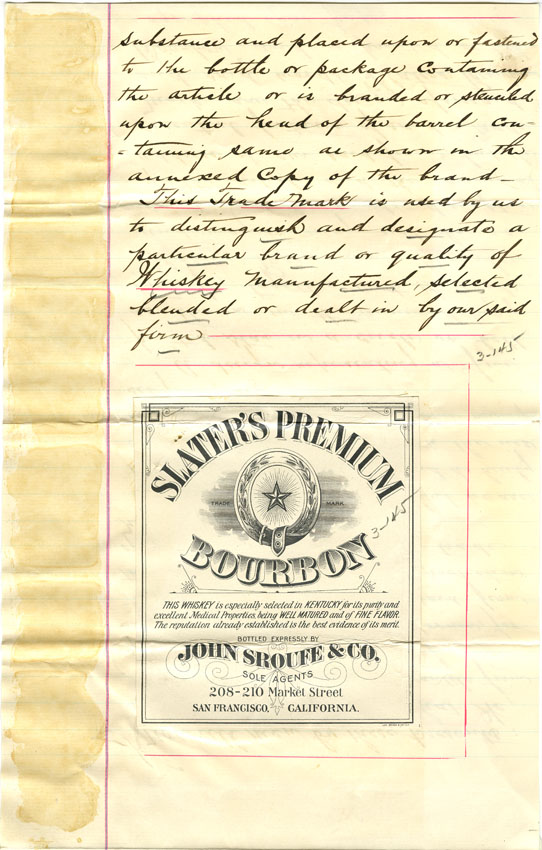 substance and placed upon or fastened
to the bottle or package Containing
the article or is branded or stenciled
upon the head of the barrel con-
-taining same as shown in the
annexed Copy of the brand-
This Trade Mark is used by us
to distinguish and designate a
particular brand or quality of
Whiskey Manufactured, selected
blended or dealt in by our said
firm
3-145
SLATER'S PREMIUM
TRADE MARK
3-145
BOURBON
THIS WHISKEY is especially selected in KENTUCKY for its purity and
excellent Medical Properties, being WELL MATURED and of FINE FLAVOR.
The reputation already established is the best evidence of its merit.
BOTTLED EXPRESSLY BY
JOHN SROUFE & CO.
SOLE AGENTS
208-210 Market Street
SAN FRANCISCO, CALIFORNIA.